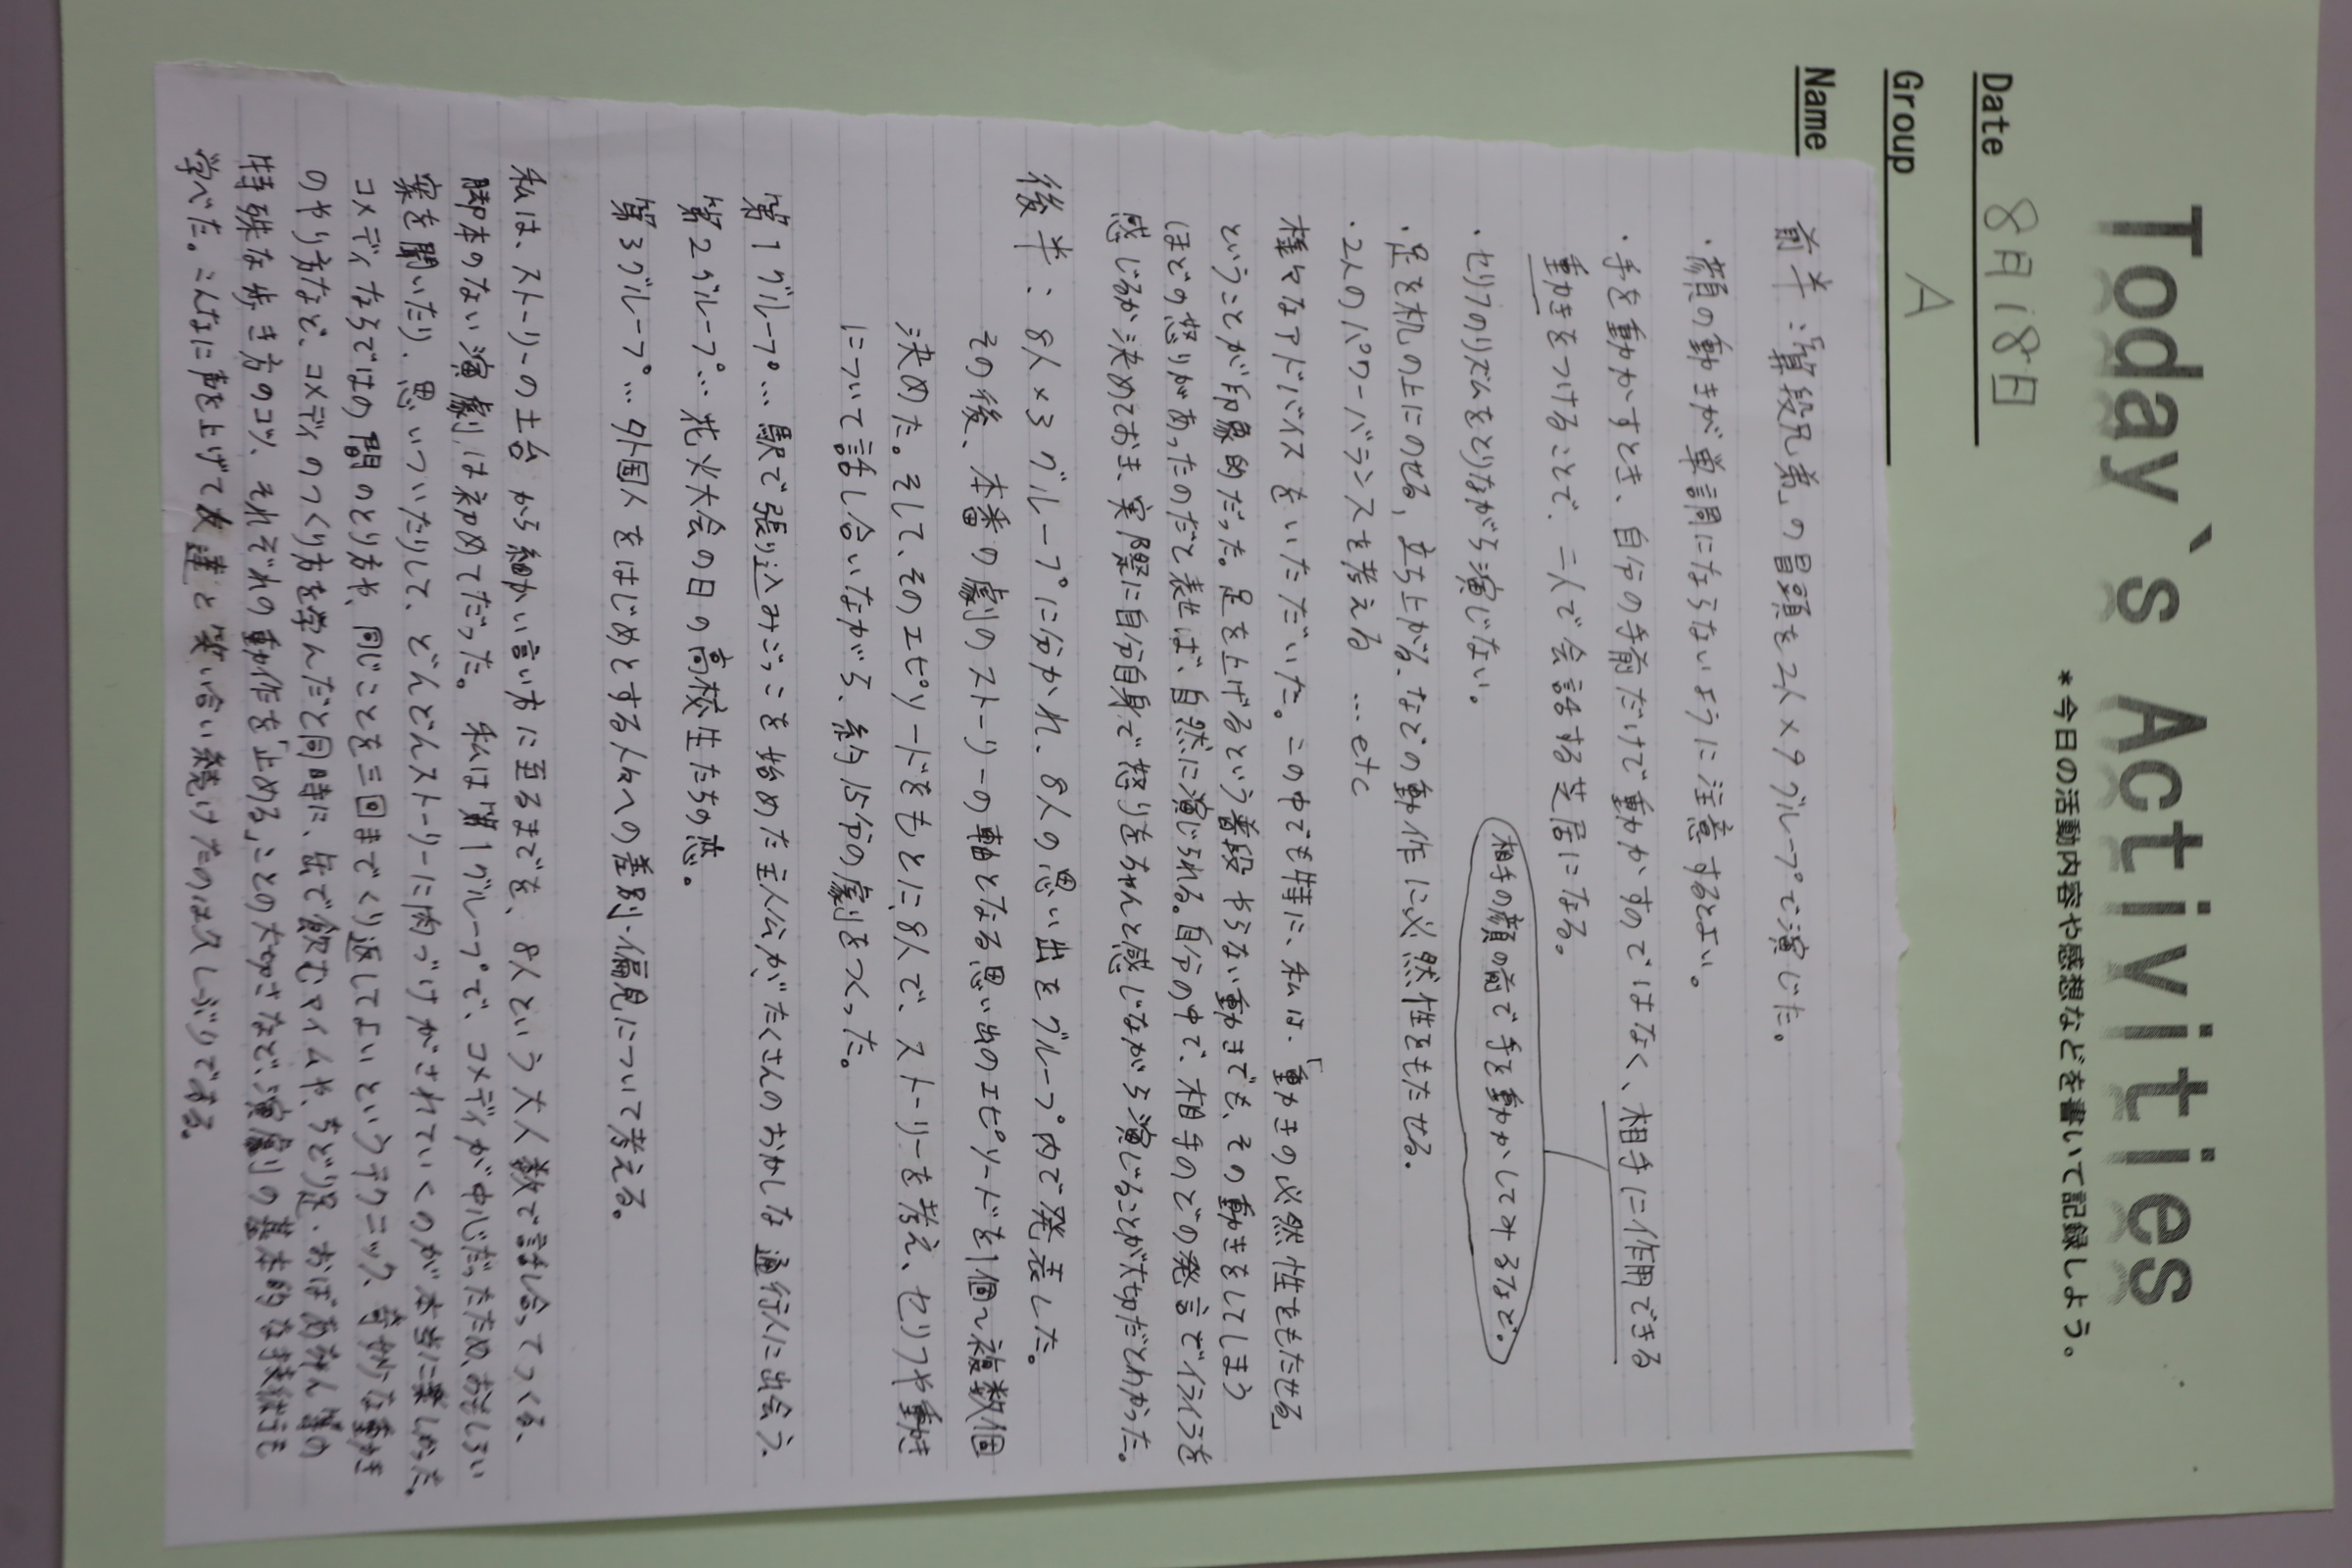 Today`s Activities
*今日の活動内容や感想などを書いて記録しよう。
Date 8月18日
Group A
Name
前半:「算段兄弟」の冒頭を2人×9グループで演じた。
・顔の動きが単調にならないように注意するとよい。
・手を動かすとき、自分の手前だけで動かすのではなく、相手に作用できる
動きをつけることで、二人で会話する芝居になる。
相手の顔の前で手を動かしてみるなど。
・セリフのリズムをとりながら演じない。
・足を机の上にのせる, 立ち上がる、などの動作に必然性をもたせる。
・2人のパワーバランスを考える …etc
様々なアドバイスをいただいた。この中でも特に、私は、「動きの必然性をもたせる」
ということが印象的だった。足を上げるという普段やらない動きでも、その動きをしてしまう
ほどの怒りがあったのだと表せば、自然に演じられる。自分の中で、相手のどの発言でイライラを
感じるか決めておき、実際に自分自身で怒りをちゃんと感じながら演じることが大切だとわかった。
後半:8人×3グループに分かれ、8人の思い出をグループ内で発表した。
その後、本番の劇のストーリーの軸となる思い出のエピソードを1個~複数個
決めた。そして、そのエピソードをもとに、8人で、ストーリーを考え、セリフや動き
について話し合いながら、約15分の劇をつくった。
第1グループ…駅で張り込みごっこを始めた主人公が、たくさんのおかしな通行人に出会う、
第2グループ…花火大会の日の高校生たちの恋。
第3グループ…外国人をはじめとする人々への差別・偏見について考える。
私は、ストーリーの土台から細かい言い方に至るまでを、8人という大人数で話し合ってつくる、
脚本のない演劇は初めてだった。私は第1グループで、コメディが中心だったため、おもしろい
案を聞いたり、思いついたりして、どんどんストーリーに肉づけがされていくのが本当に楽しかった。
コメディならではの間のとり方や、同じことを三回までくり返してよいというテクニック、音がな動き
のやり方など、コメディのつくり方を学んだと同時に、缶で飲むマイムや、ちどり足・おばあさん等の
特殊な歩き方のコツ、それぞれの動作を「止める」ことの大切さなど、演劇の基本的な技術も
学べた。こんなに声を上げて友達と笑い合い続けたのは久しぶりである。